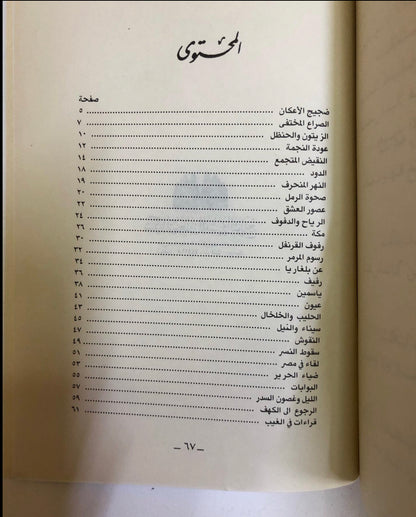 المحتوى
صفحة
ضجيج الأعكان ٥
الصراع المختفى ٧
الزيتون والحنظل ١٠
عودة النجمة ١٢
النقيض المتجمع ١٤
الدود ١٨
النهر المنحرف ١٩
صحوة الرمل ٢٠
عصور العشق ٢٢
الرياح والدفوف ٢٤
مكة ٢٦
رفوف القرنفل ٣٠
رسوم المرمر ٣٢
عن بلغاريا ٣٤
رفيف ٣٦
ياسمين ٣٨
عيون ٤١
الحليب والخلخال ٤٣
سيناء والنيل ٤٥
النقوش ٤٧
سقوط النسر ٤٩
لقاء في مصر ٥١
ضياء الحرير ٥٣
البوابات ٥٥
الليل وغصون السدر ٥٧
الرجوع الى الكهف ٥٩
قراءات في الغيب ٦١
– ٦٧ –